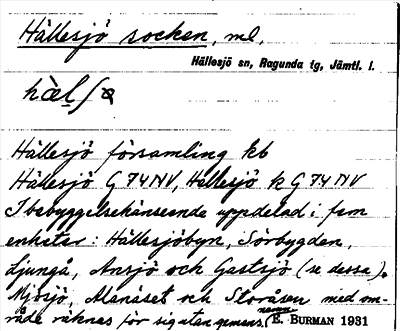 Hällesjö socken, ml,
Hällesjö sn, Ragunda tg, Jämtl. l.
Hällesjö församling kb
Hällesjö G 74 NV, Hällesjö k G 74 NV
I bebyggelsehänseende uppdelad i fem
enheter: Hällesjöbyn, Sörbygden,
Ljungå, Ansjö och Gastsjö (se dessa).
Mjösjö, Alanäset och Storåsen med om-
råde räknas för sig utan gemens. namn.
(E. BURMAN 1931